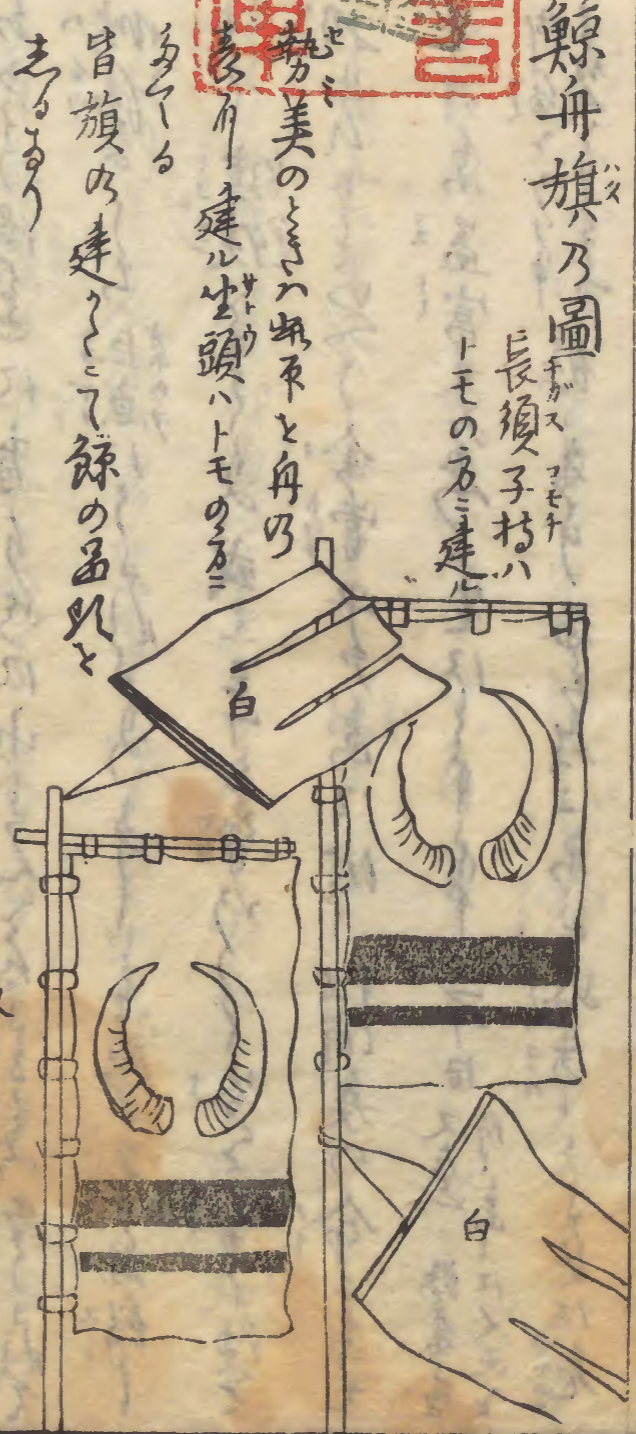 鯨舟旗乃圖
長須子持ハ
トモの方ニ建ル
勢美のときハ此印を舟乃
表ニ建ル坐頭ハトモの方ニ
たてる
皆旗の建かたにて鯨の品類を
志るなり
白
白